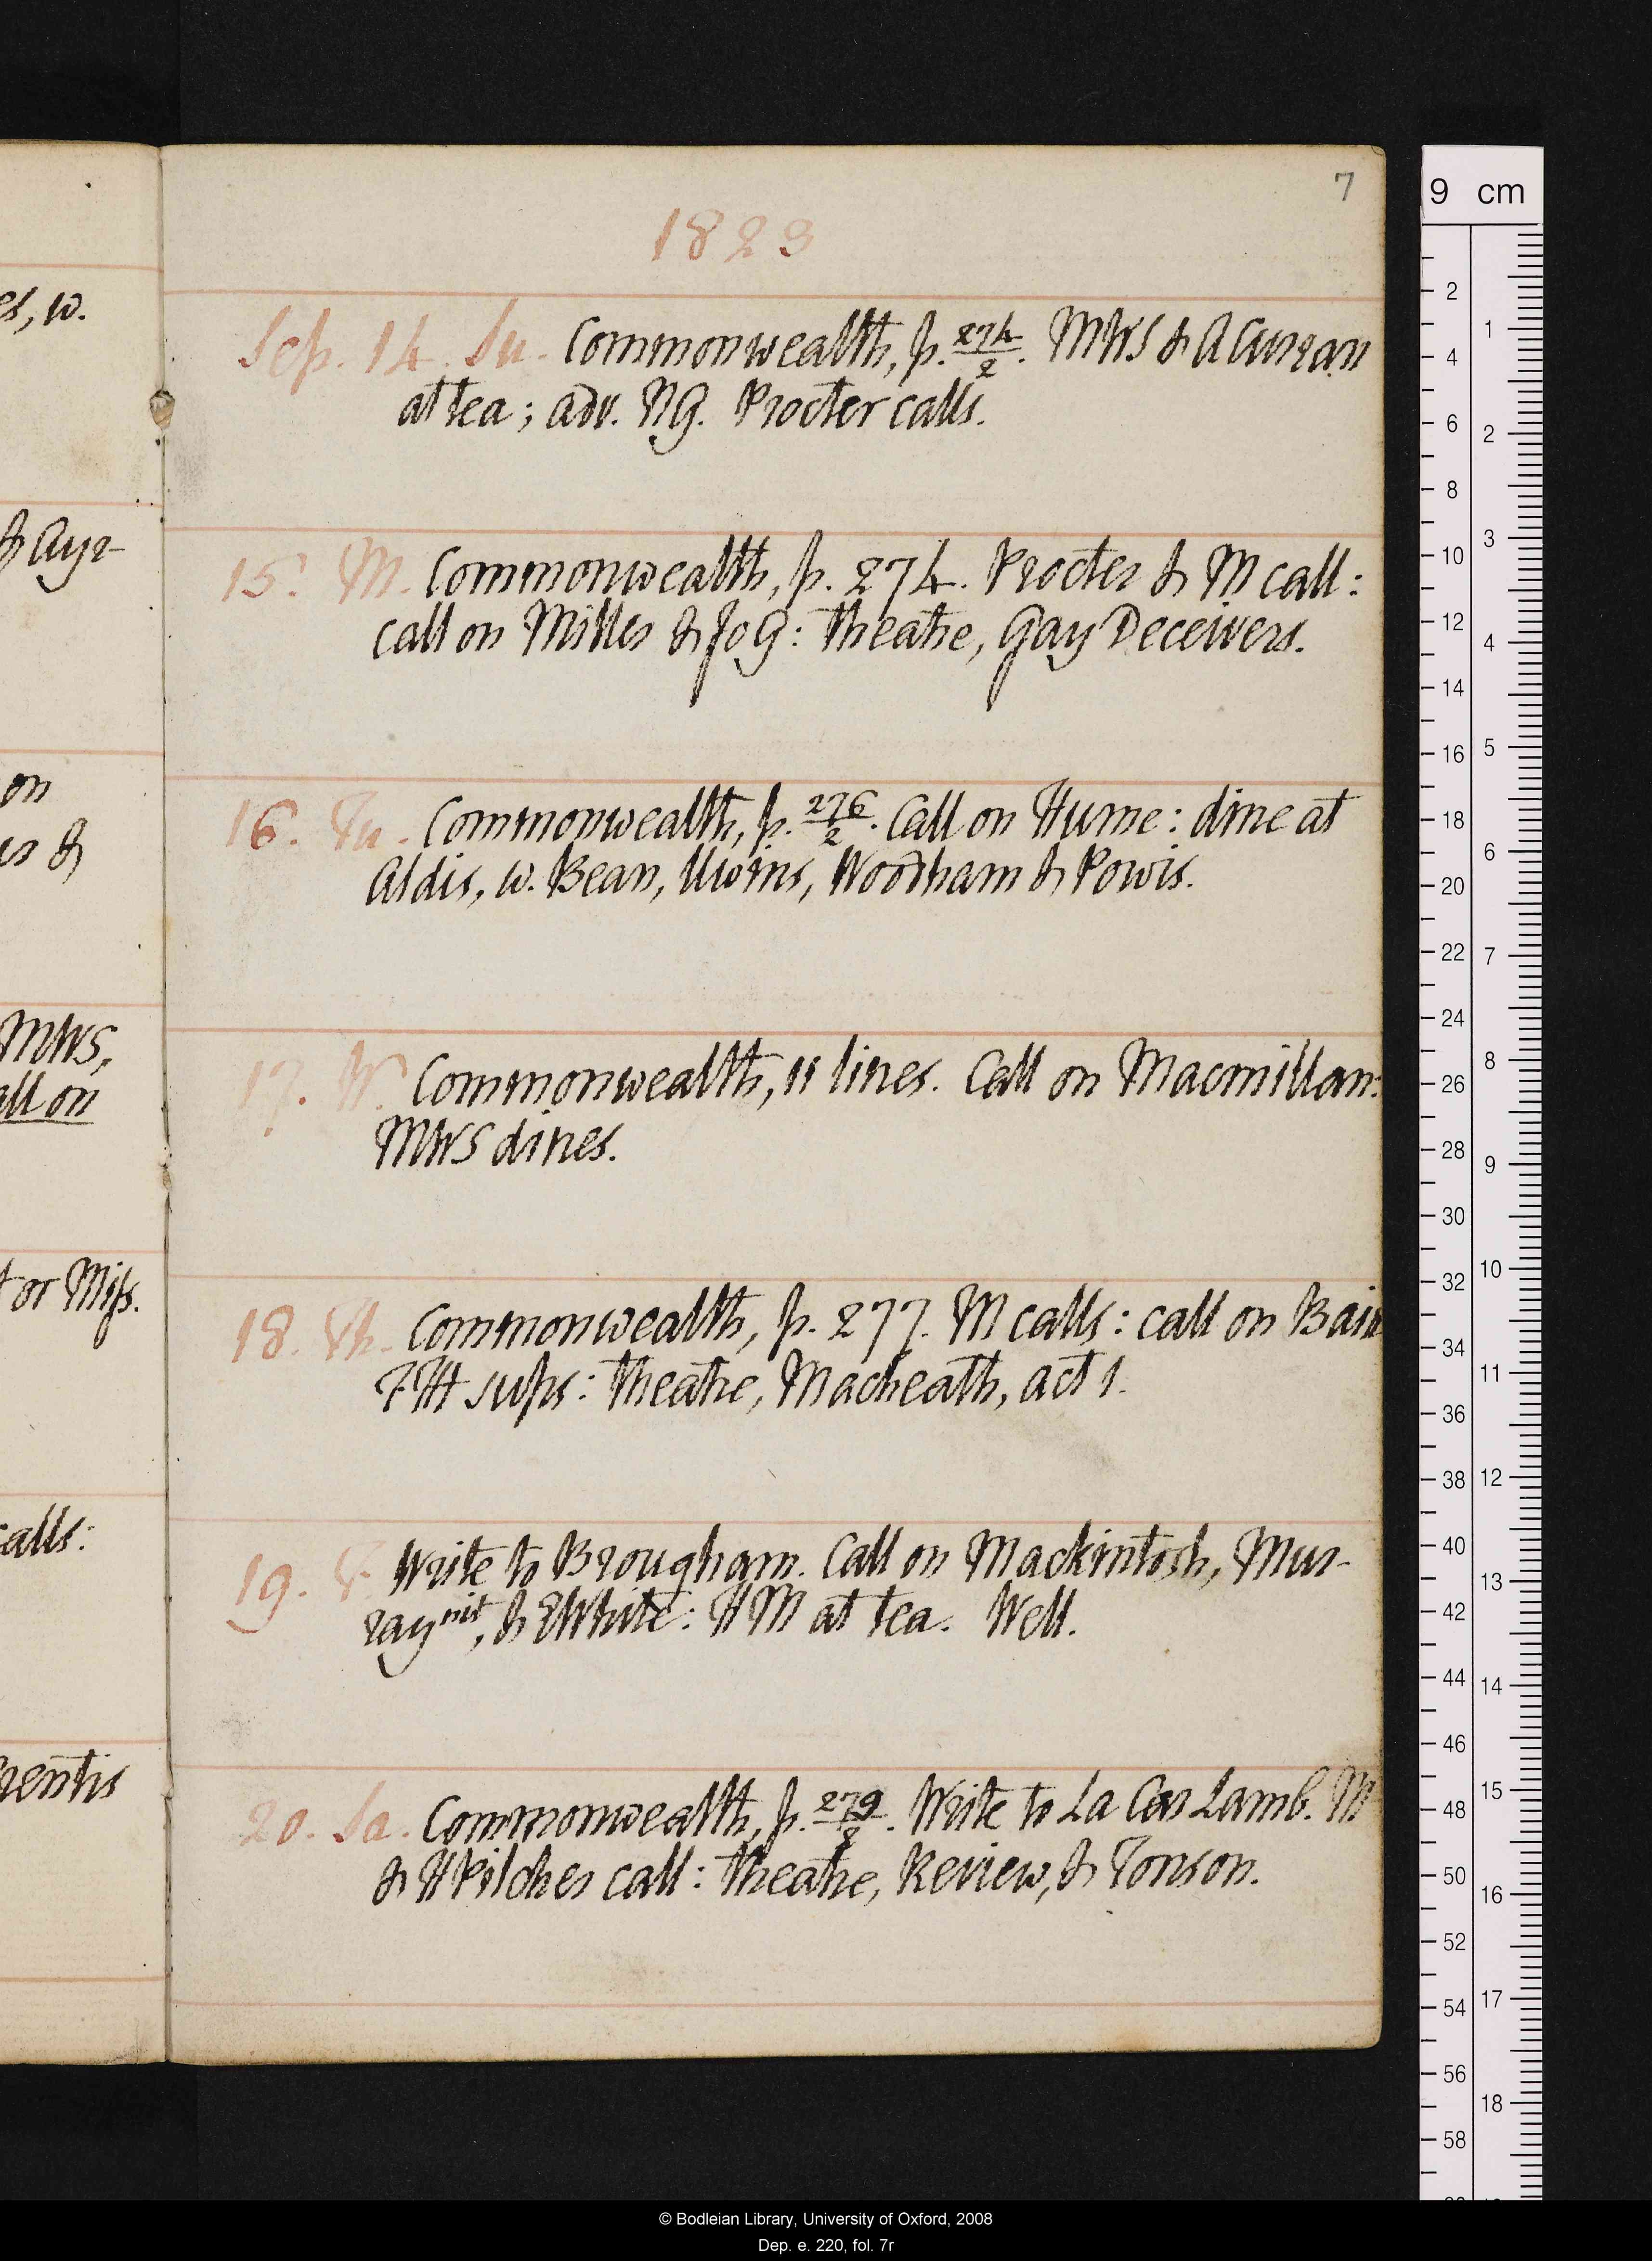 7
1823
Sep. 14. Su. Commonwealth, p. 274/2. MWS & A Curran
at tea; adv. NG. Procter calls.
15. M. Commonwealth, p. 274. Procter & M call:
call on Miller & Jo G: theatre, Gay Deceivers.
16. Tu. Commonwealth, p. 276/2. Call on Hume: dine at
Aldis, w. Bean, Uwins, Woodham & Powis.
17. W. Commonwealth, 11 lines. Call on Macmillan:
MWS dines.
18. Th. Commonwealth, p. 277. M calls: call on Bain
HH sups: theatre, Macheath, act 1.
19. F. Write to Brougham. Call on Mackintosh, Mur-
ray nit, & E White: HM at tea. Well.
20. Sa. Commonwealth, p. 279/2. Write to La Cas Lamb. M
& H Pilcher call: theatre, Review, & Tonson.
es, w.
& Ayr-
on
& 
MWS,
all on
or Miss.
calls:
rentis
9 cm
2
4
6
8
10
12
14
16
18
20
22
24
26
28
30
32
34
36
38
40
42
44
46
48
50
52
54
56
58
1
2
3
4
5
6
7
8
9
10
11
12
13
14
15
16
17
18
© Bodleian Library, University of Oxford, 2008
Dep. e. 220, fol. 7r